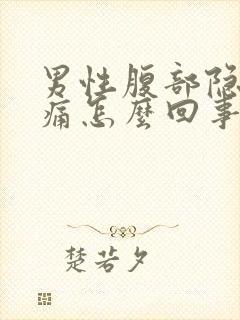 男性腹部隐
痛怎麼回事
楚若夕